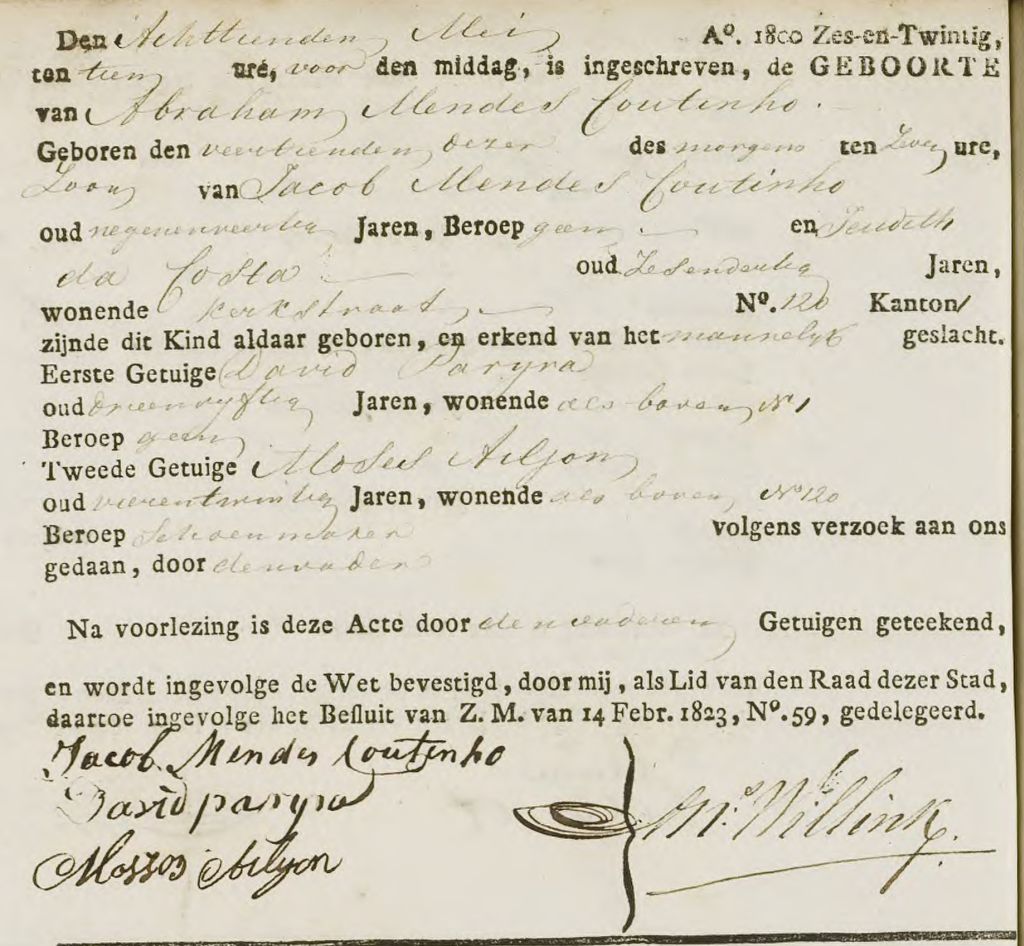 Den Achttienden Mei A°. 1800 Zes-en-Twintig,
ten tien ure, voor den middag, is ingeschreven, de GEBOORTE
van Abraham Mendes Coutinho.
Geboren den veertienden dezer des morgens ten zeven ure,
Zoon van Jacob Mendes Coutinho
oud negenenveertig Jaren, Beroep geen en Judith
da Costa oud Zesendertig Jaren,
wonende Kerkstraat N°. 120 Kanton/
zijnde dit Kind aldaar geboren, en erkend van het mannelyk geslacht.
Eerste Getuige David Paryra
oud drieenvyftig Jaren, wonende als boven N° 1
Beroep geen
Tweede Getuige Moses Aeljon
oud vierentwintig Jaren, wonende als boven N° 120
Beroep Schoenmaker volgens verzoek aan ons
gedaan, door den vader
Na voorlezing is deze Acte door den vader en Getuigen geteekend,
en wordt ingevolge de Wet bevestigd, door mij, als Lid van den Raad dezer Stad,
daartoe ingevolge het Besluit van Z. M. van 14 Febr. 1823, N°. 59, gedelegeerd.
Jacob Mendes Coutinho
David paryra
Mosses Aelyon
Willink